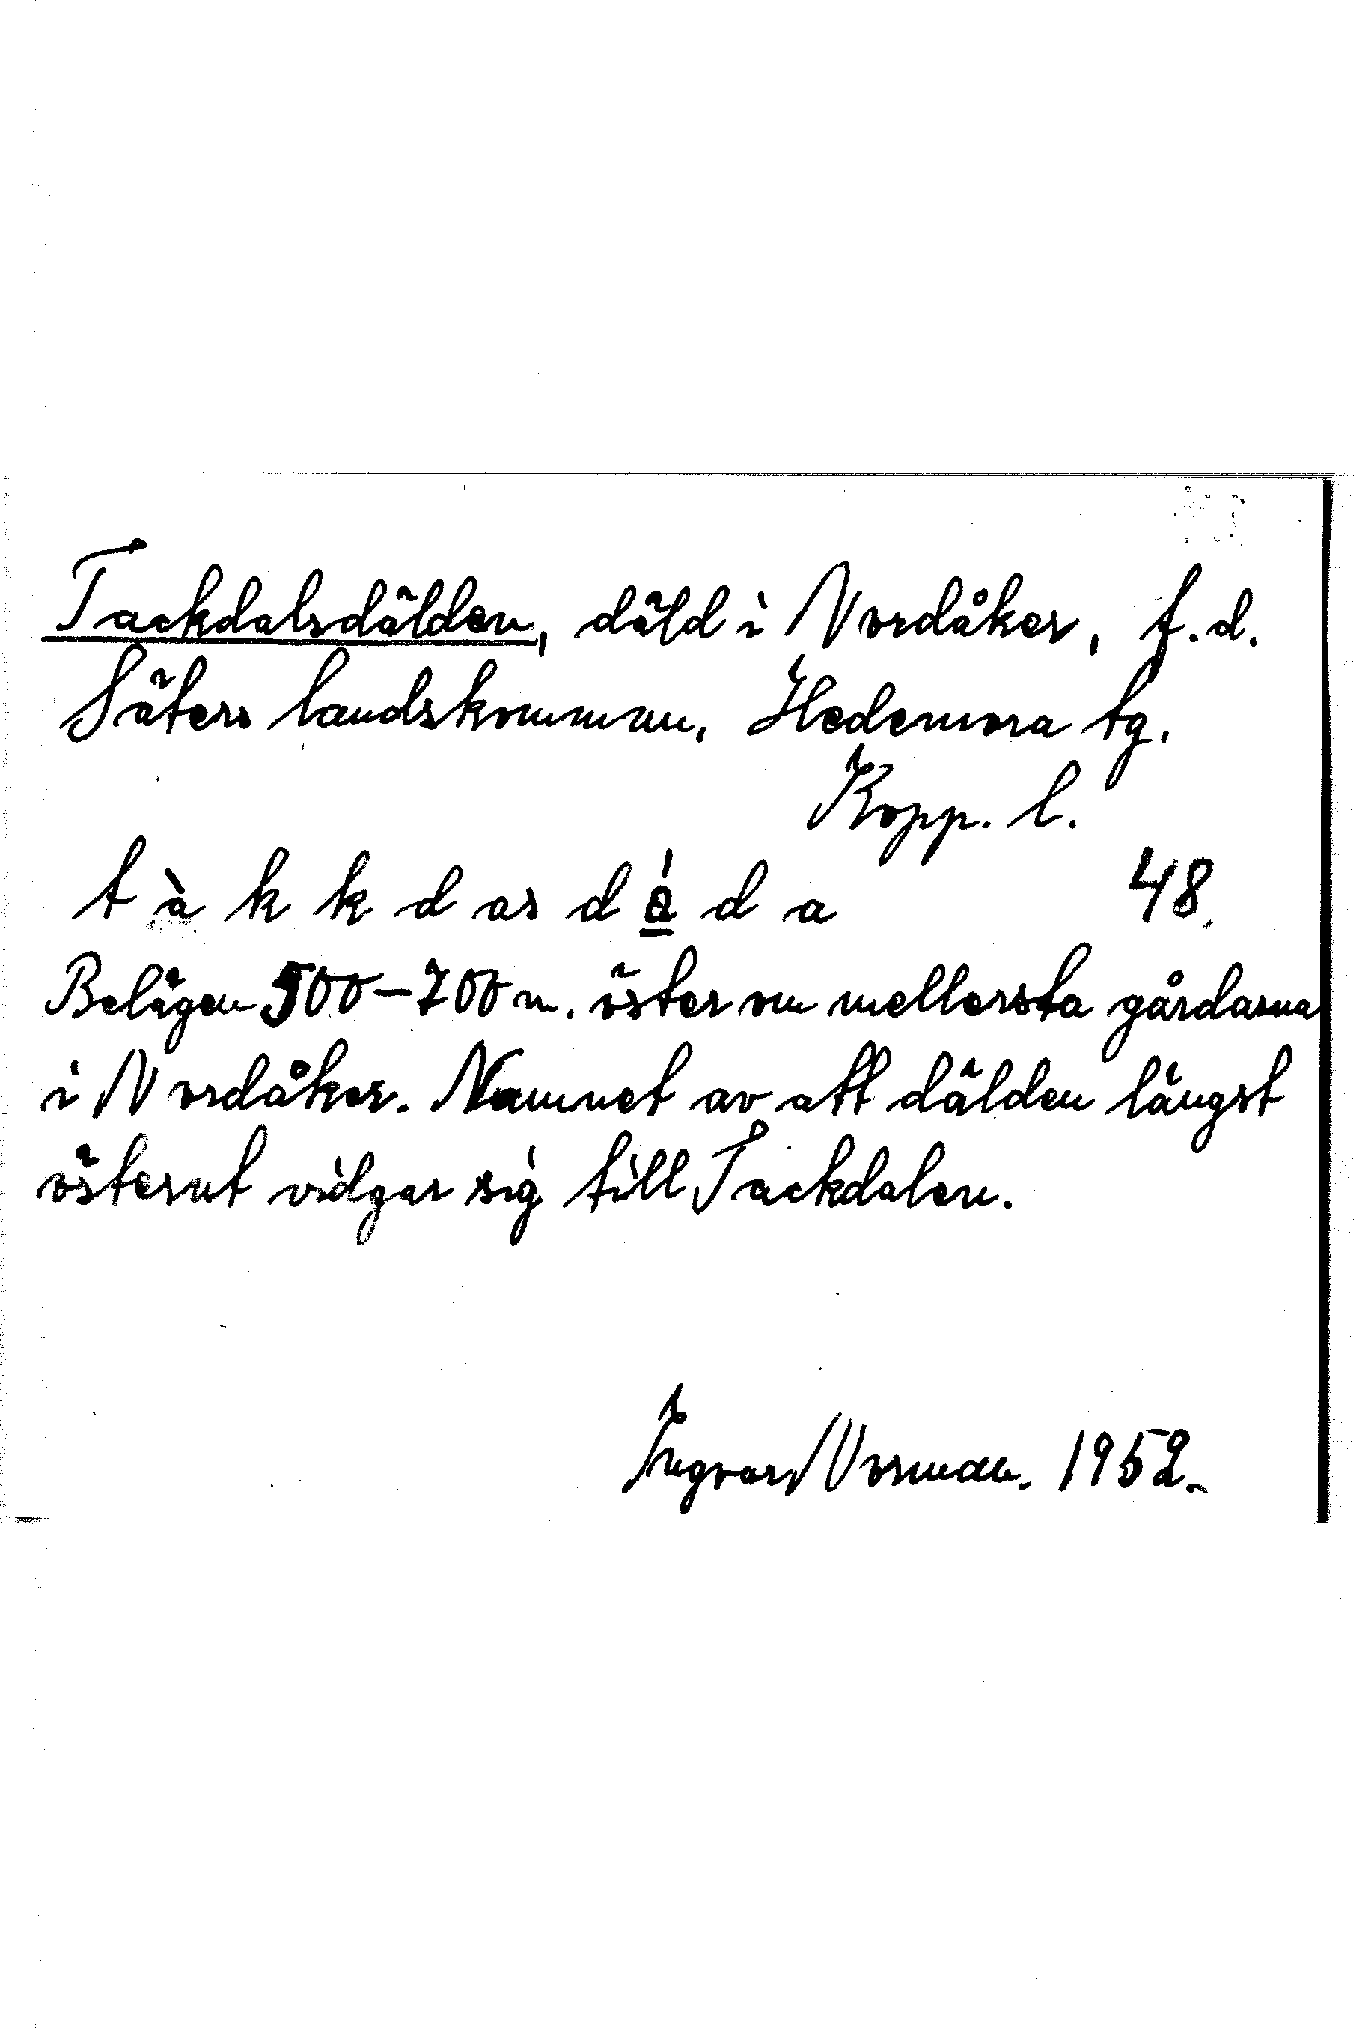 Tackdalsdälden, däld i Nordåker, f.d.
Säters landskommun, Hedemora tg.
Kopp. l.
t à k k d as d á̲ d a 48
Belägen 500-700 m. öster om mellersta gårdarna
i Nordåker. Namnet av att dälden längst
österut vidgar sig till Tackdalen.
Ingvar Norman. 1952.